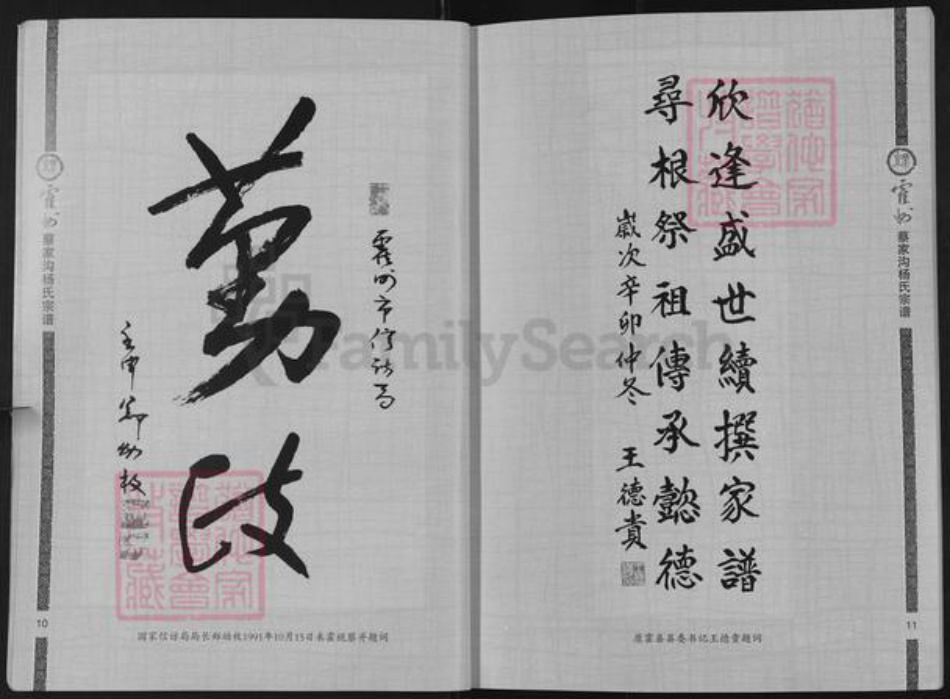 欣逢盛世續撰家譜
尋根祭祖傳承懿德
歲次辛卯仲冬 王德貴
原霍县县委书记王德贵题词
霍州
蔡家沟杨氏宗谱
11
霍州市信访局
勤政
壬申 郑幼枚
国家信访局局长郑幼枚1991年10月15日来霍视察并题词
霍州
蔡家沟杨氏宗谱
10
FamilySearch